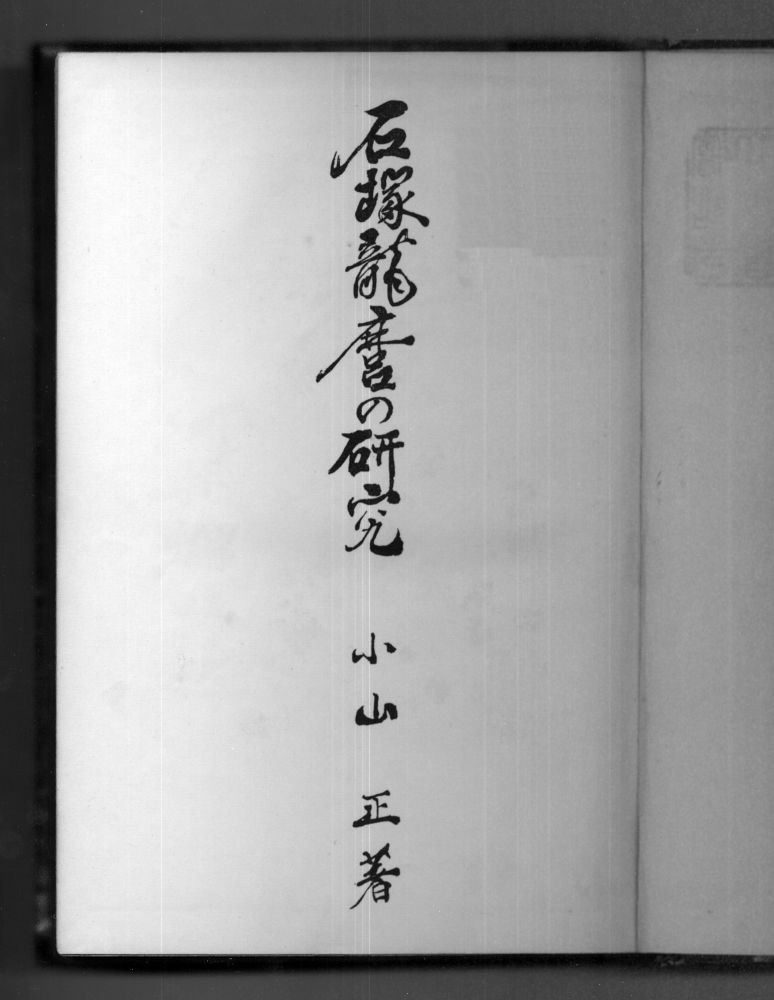 石塚龍麿の研究 小山正著